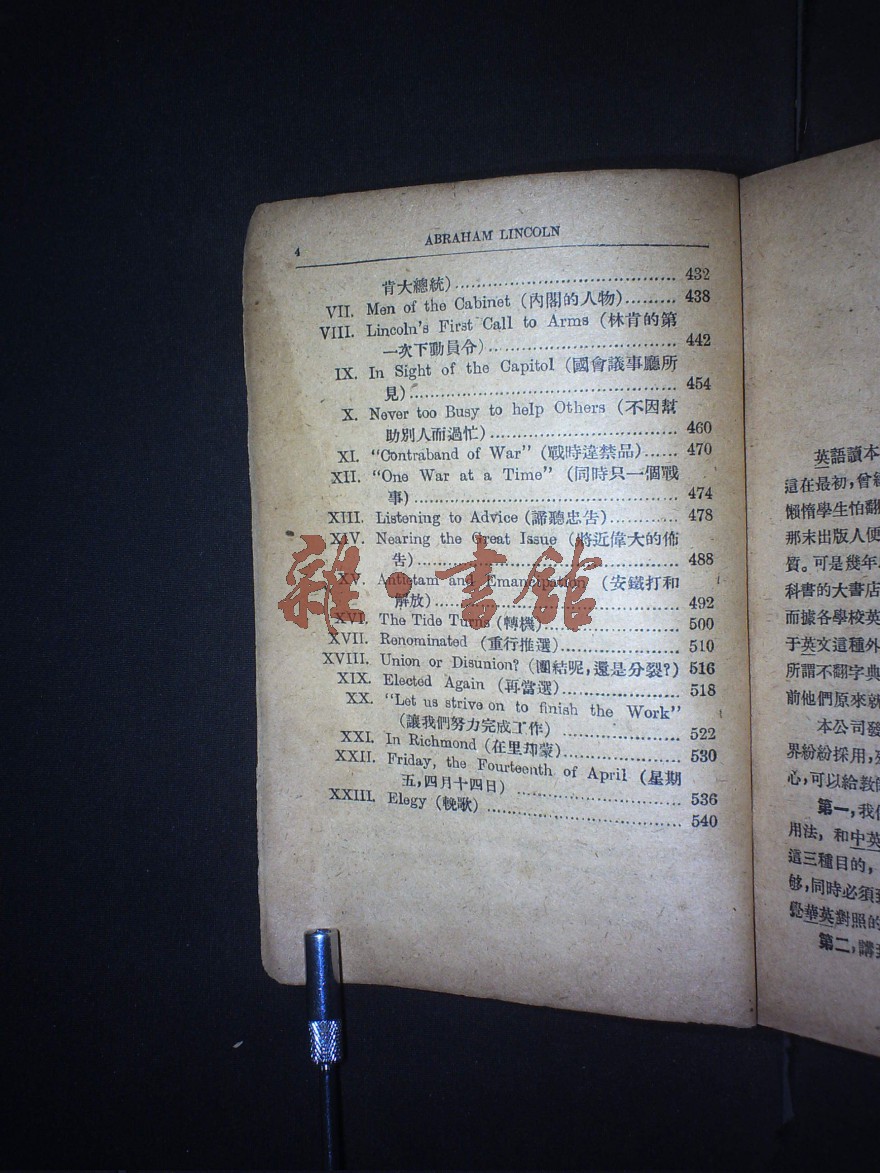 4
ABRAHAM LINCOLN
肯大總統)........................................ 432
VII. Men of the Cabinet (內閣的人物)......... 438
VIII. Lincoln's First Call to Arms (林肯的第
一次下動員令).................................. 442
IX. In Sight of the Capitol (國會議事廳所
見)................................................ 454
X. Never too Busy to help Others (不因幫
助別人而過忙).................................. 460
XI. “Contraband of War” (戰時違禁品)...... 470
XII. “One War at a Time” (同時只一個戰
事)................................................ 474
XIII. Listening to Advice (諦聽忠告)............ 478
XIV. Nearing the Great Issue (將近偉大的佈
告)................................................ 488
XV. Antietam and Emancipation (安鐵打和
解放)............................................. 492
XVI. The Tide Turns (轉機)........................ 500
XVII. Renominated (重行推選)..................... 510
XVIII. Union or Disunion? (團結呢,還是分裂?) 516
XIX. Elected Again (再當選)..................... 518
XX. “Let us strive on to finish the Work”
(讓我們努力完成工作) ..................... 522
XXI. In Richmond (在里却蒙)..................... 530
XXII. Friday, the Fourteenth of April (星期
五,四月十四日) .............................. 536
XXIII. Elegy (輓歌) .................................... 540
雜·書館
英語讀本
這在最初,曾經
懶惰學生怕翻
那末出版人便
質。可是幾年
科書的大書店
而據各學校英
于英文這種外
所謂不翻字典
前他們原來就
本公司發
界紛紛採用,
心,可以給教師
第一,我們
用法,和中英
這三種目的,
够,同時必須
覺華英對照的
第二,講